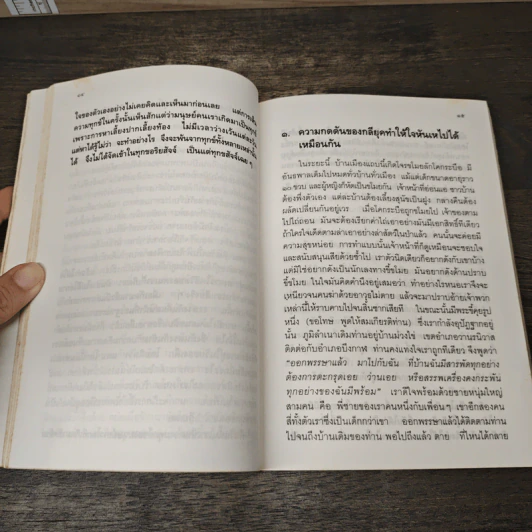 ๑๔
ใจของตัวเองอย่างไม่เคยคิดและเห็นมาก่อนเลย แต่การเห็น
ความทุกข์ในครั้งนั้นเห็นสักแต่ว่ามนุษย์คนเราเกิดมาเป็นทุกข์
เพราะการหาเลี้ยงปากเลี้ยงท้อง ไม่มีเวลาว่างเว้นแต่ละวัน
แต่หาได้รู้ไม่ว่า จะทำอย่างไร จึงจะพ้นจากทุกข์ทั้งหลายเหล่านั้น
ได้ จึงไม่ได้จัดเข้าในทุกขอริยสัจจ์ เป็นแต่ทุกขสัจจ์เฉย ๆ
๑๕
๑. ความกดดันของกลียุคทำให้ใจหันเหไปได้
เหมือนกัน
ในระยะนี้ บ้านเมืองแถบนี้เกิดโจรขโมยลักโคกระบือ มี
อันธพาลเต็มไปหมดทั่วบ้านทั่วเมือง แม้แต่เด็กขนาดอายุราว
๑๐ ขวบ และผู้หญิงก็หัดเป็นขโมยกัน เจ้าหน้าที่อ่อนแอ ชาวบ้าน
ต้องพึ่งตัวเอง แต่ละบ้านต้องเลี้ยงสุนัขเป็นฝูง กลางคืนต้อง
ผลัดเปลี่ยนกันอยู่เวร เมื่อโคกระบือถูกขโมยไป เจ้าของตาม
ไปไถ่ถอน มันจะต้องเรียกค่าไถ่เอาอย่างมันมีเอกสิทธิ์ทีเดียว
ถ้าใครใจเด็ดตามล่าเอาอย่างล่าสัตว์ในป่าแล้ว คนนั้นจะค่อยมี
ความสุขหน่อย การทำแบบนั้นเจ้าหน้าที่ก็ดูเหมือนจะชอบใจ
และสนับสนุนเสียด้วยซ้ำไป เราตัวนิดเดียวก็อยากดังกับเขาบ้าง
แต่มิใช่อยากดังเป็นนักเลงทางขี้ขโมย มันอยากดังด้านปราบ
ขี้ขโมย ในใจมันคิดดำนึงอยู่เสมอว่า ทำอย่างไรหนอเราจึงจะ
เหนียวจนคนฆ่าด้วยอาวุธไม่ตาย แล้วจะมาปราบอ้ายเจ้าพวก
เหล่านี้ให้ราบคาบไปจนสิ้นซากเสียที ในขณะนั้นมีพระขี้คุยรูป
หนึ่ง (ขอโทษ พูดให้สมเกียรติท่าน) ซึ่งเรากำลังอุปัฏฐากอยู่
นั้น ภูมิลำเนาเดิมท่านอยู่บ้านม่วงไข่ เขตอำเภอวานรนิวาส
ติดต่อกับอำเภอบึงกาฬ ท่านคงแทงใจเราถูกทีเดียว จึงพูดว่า
"ออกพรรษาแล้ว มาไปกับฉัน ที่บ้านฉันมีสารพัดทุกอย่าง
ต้องการตะกรุดเอย ว่านเอย หรือสรรพเครื่องคงกระพัน
ทุกอย่างของฉันมีพร้อม" เราดีใจพร้อมด้วยชายหนุ่มใหญ่
สามคน คือ พี่ชายของเราคนหนึ่งกับเพื่อนๆ เขาอีกสองคน
สี่ทั้งตัวเราซึ่งเป็นเด็กกว่าเขา ออกพรรษาแล้วได้ติดตามท่าน
ไปจนถึงบ้านเดิมของท่าน พอไปถึงแล้ว ตาย ที่ไหนได้กลาย